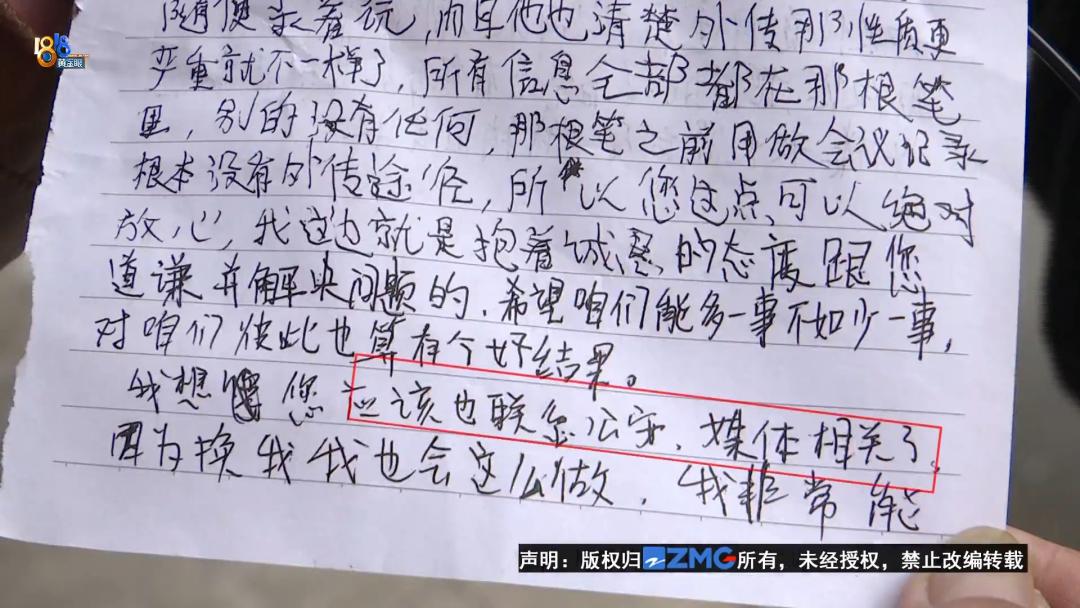 随便求着玩，而且他也清楚外传那性质更
1818
黄金眼
严重就不一样了，所有信息全部都在那根笔
里，别的没有任何，那根笔之前用做会议记录
根本没有外传途径，所以您这点可以绝对
放心，我这边就是抱着诚恳的态度跟您
道谦并解决问题的，希望咱们能多一事不如少一事，
对咱们彼此也算有个好结果。
我想您应该也联系公安、媒体相关了。
因为换我我也会这么做，我非常能
声明：版权归ZMG所有，未经授权，禁止改编转载